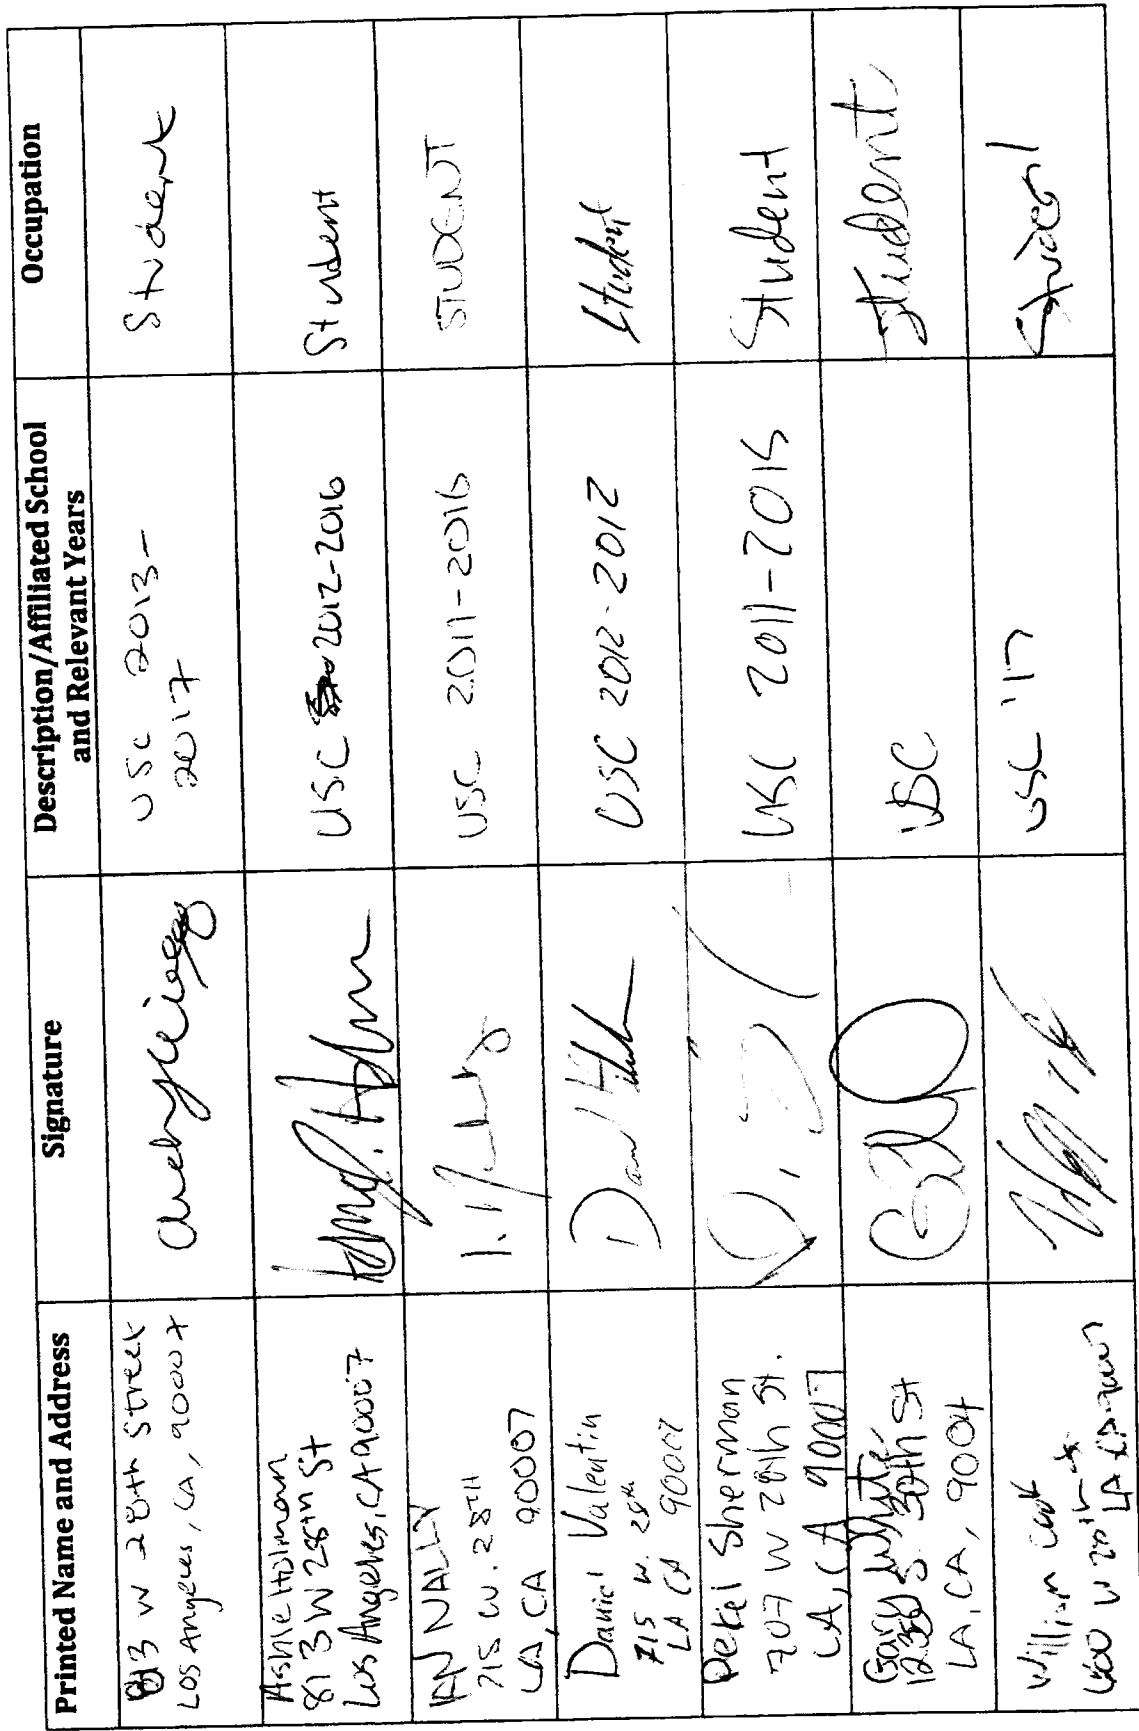 Printed Name and Address
Signature
Description/Affiliated School
and Relevant Years
Occupation
813 W 28th Street
Los Angeles, CA, 90007
USC 2013-
2017
Student
Ashlie Holman
813 W 28th St
Los Angeles, CA 90007
USC 2012-2016
Student
IAN NALLY
715 W. 28TH
LA, CA 90007
USC 2011-2016
STUDENT
Daniel Valentin
715 W. 28th
LA CA 90007
USC 2012-2012
Student
Dekel Sherman
707 W 28th St.
LA, CA 90007
USC 2011-2015
Student
Gary White
S. 30th St
LA, CA, 9004
USC
Student
William Cook
W 28th
LA CA 90007
USC '17
Student